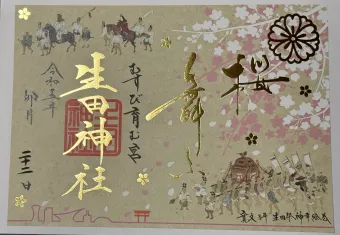 桜舞ふ
むすび育む宮
生田神社
令和五年
卯月
二十二日
寛文3年 生田祭神幸絵巻